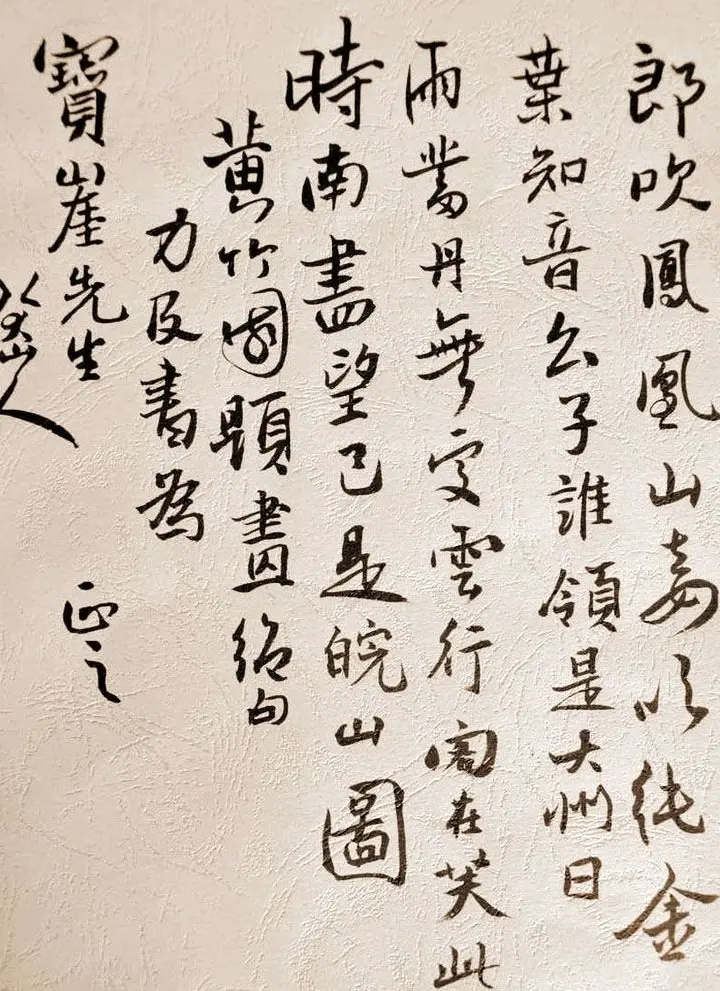 郎吹鳳凰山妾以純金
葉知音公子誰領是大州日
雨丹無雲行在芙此
時南盡望已是皖山圖
黃竹園題畫絕句
力及書為
寶崖先生 正之
八大山人